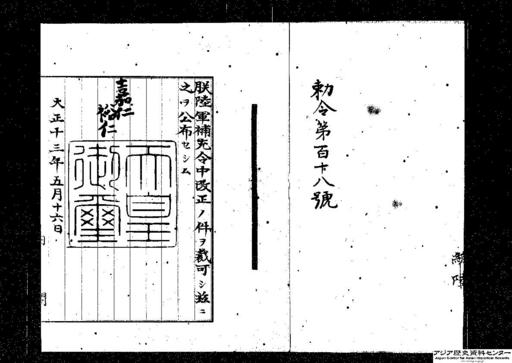 勅令第百十八號
朕陸軍補充令中改正ノ件ヲ裁可シ茲ニ
之ヲ公布セシム
嘉仁
裕仁
天皇御璽
大正十三年五月十六日
アジア歴史資料センター
Japan Center for Asian Historical Records